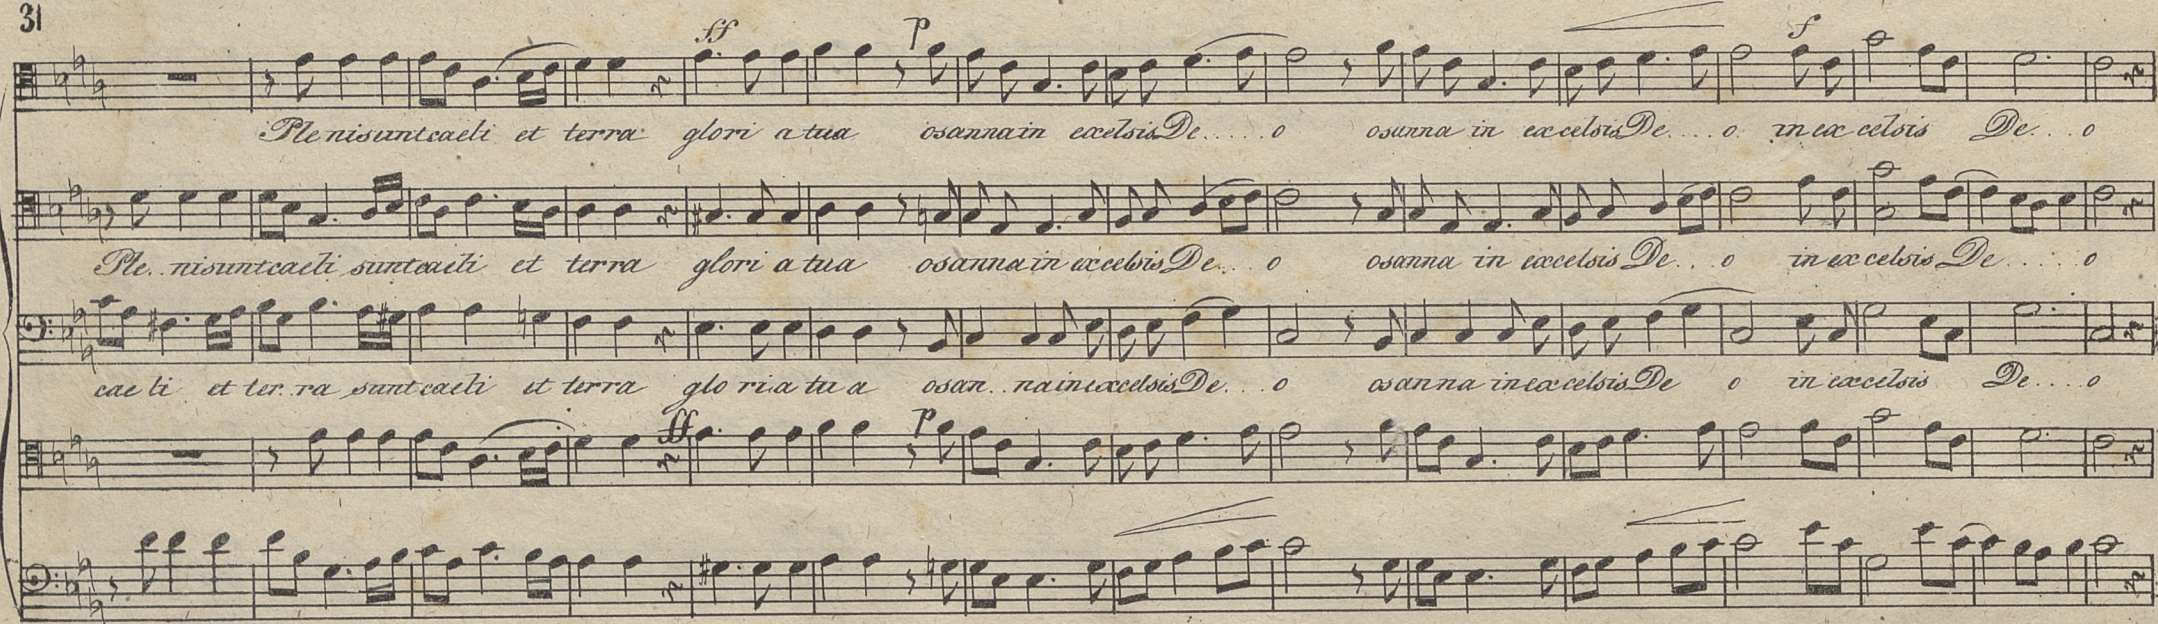 31
ff p f
Ple ni sunt caeli et terra glori a tua osanna in excelsis De.....o osanna in excelsis De....o in ex celsis De...o
Ple..ni sunt caeli sunt caeli et terra glori a tua osanna in excelsis De...o osanna in excelsis De...o in ex celsis De.....o
cae li et ter..ra sunt caeli et terra glo ri a tu a osan..na in excelsis De...o osanna in excelsis De o in excelsis De....o
ff p